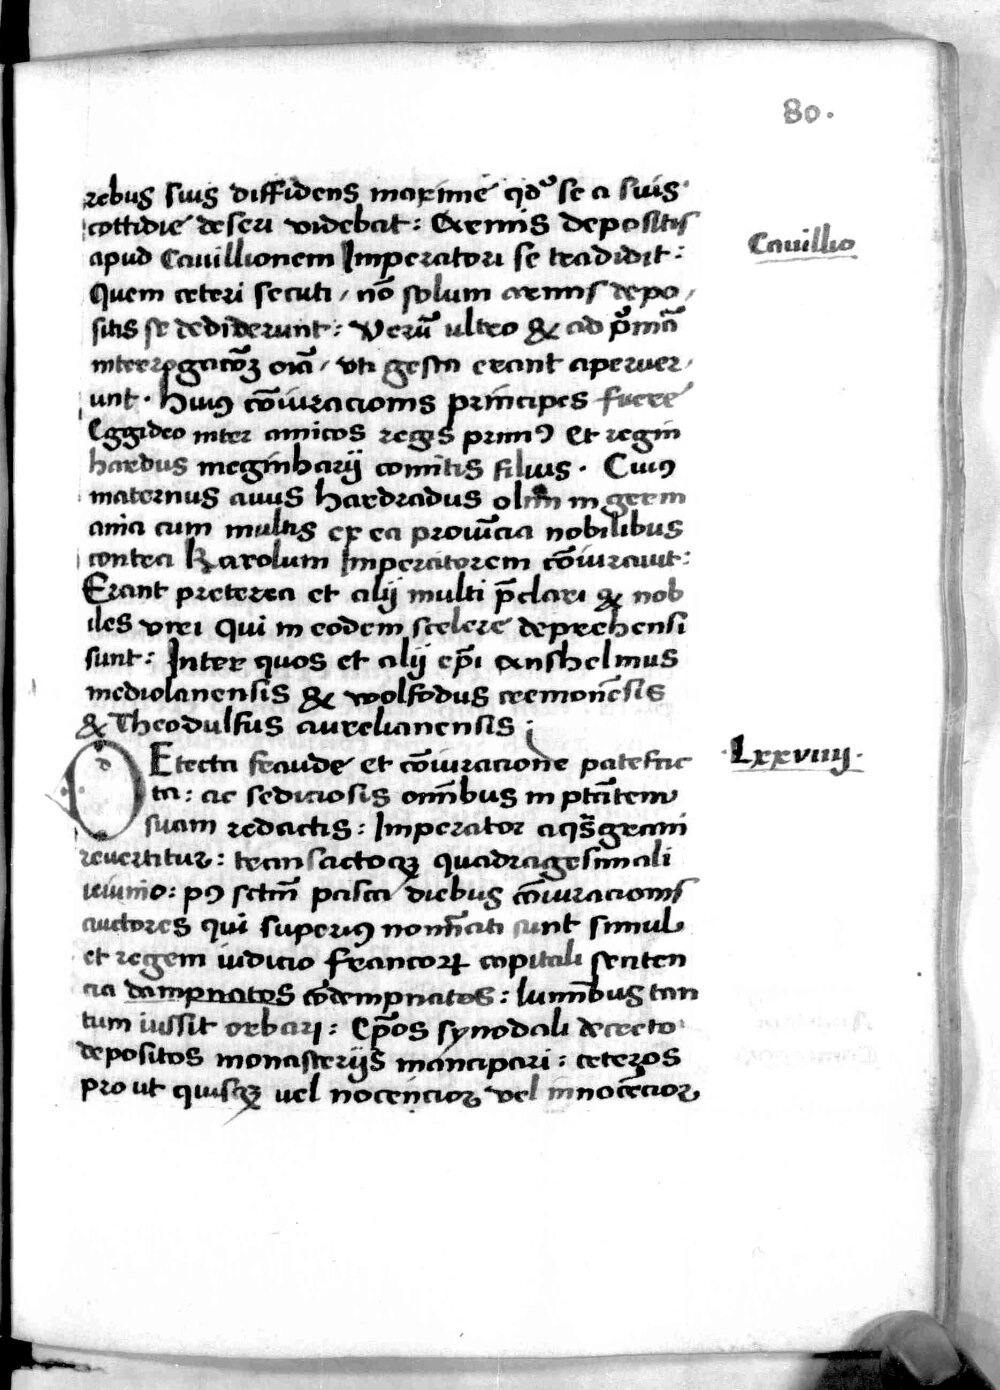 80.
rebus suis diffidens maxime qd' se a suis
cottidie deseri videbat : Armis depositis
Cauillio
apud Cauillionem Imperatori se tradidit :
Quem ceteri secuti / nō solum armis depo /
sitis se dediderunt : Verū ultro & ad p̄mā
interrogacōʒ oīa / uti gesta erant aperuer /
unt . Huiꝰ cōiuracionis principes fuere
Eggideo inter amicos regis primꝰ Et regin
hardus meginharij comitis filius . Cuiꝰ
maternus auus hardradus olim in germ
ania cum multis ex ea prouīcia nobilibus
contra Karolum Imperatorem cōiurauit :
Erant preterea et alij multi p̄clari & nob
iles viri Qui in eodem scelere deprehensi
sunt : Inter quos et alij ep̄i Anshelmus
mediolanensis & wolfodus cremonēsis
& Theodulfus aurelianensis ;
Lxxviiij.
DEtecta fraude et cōiuracione patefac
ta : ac sediciosis omībus in ptātem
suam redactis : Imperator aqsgrani
reuertitur : transactoqʒ quadragesimali
ieiunio : pꝰ sctm̄ pasca diebus cōiuracionis
auctores qui superiꝰ nomīati sunt simul
et regem iudicio francorꝝ capitali senten
cia dampnatos cōdempnatos : lumībus tan
tum iussit orbari : Ep̄os synodali decreto
depositos monasterijs mancipari : ceteros
prout quisqʒ uel nocencior vel innocēcior